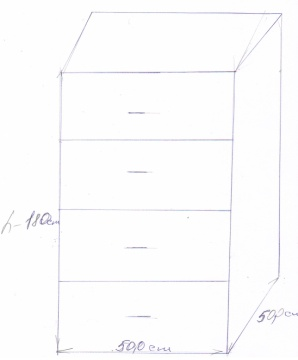 h-180cm
50,0 cm
50,0 cm